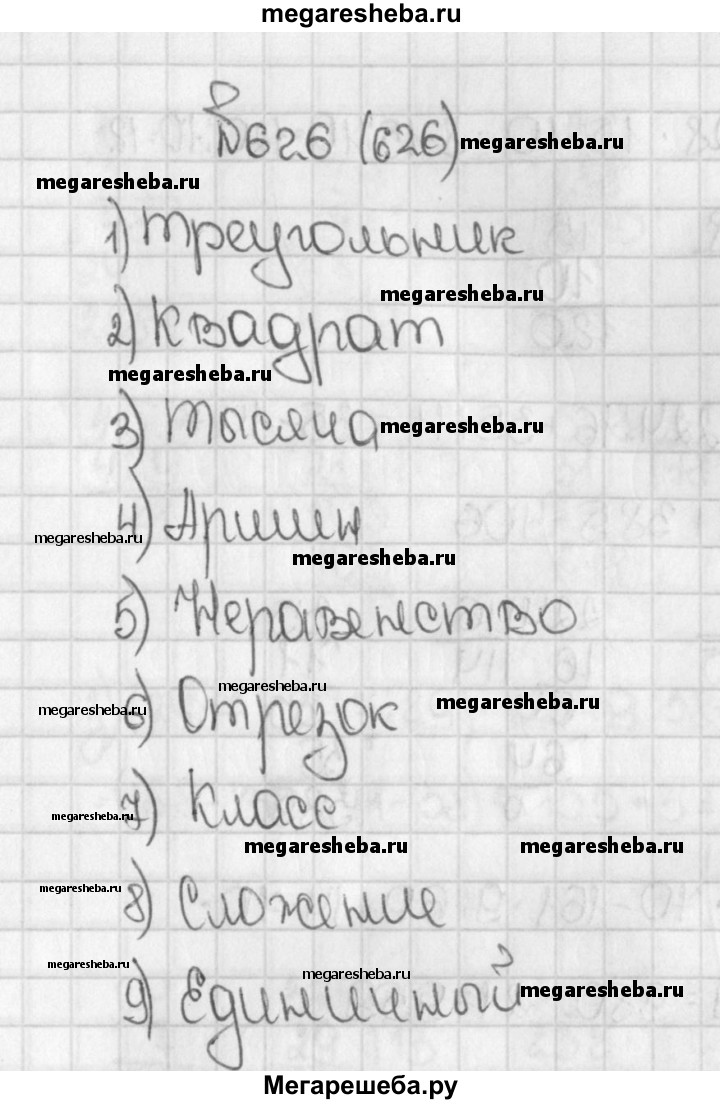 megaresheba.ru
№626 (626) megaresheba.ru
megaresheba.ru
1) треугольник
megaresheba.ru
2) квадрат
megaresheba.ru
3) тысяча megaresheba.ru
4) Аршин
megaresheba.ru
megaresheba.ru
5) Неравенство
megaresheba.ru
6) Отрезок megaresheba.ru
megaresheba.ru
7) Класс
megaresheba.ru
megaresheba.ru megaresheba.ru
megaresheba.ru
8) Сложение
megaresheba.ru
megaresheba.ru
9) Единичный megaresheba.ru
Мегарешеба.ру